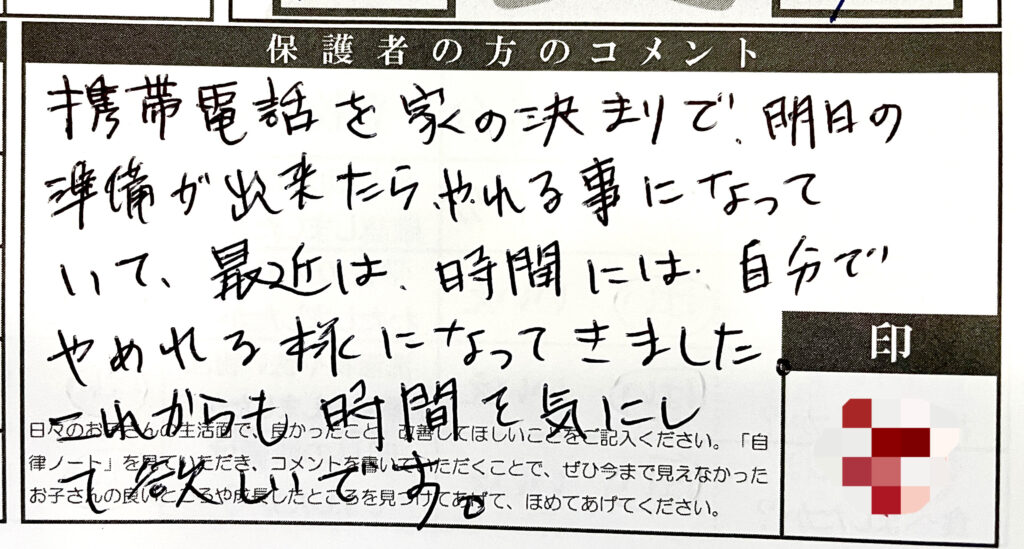 保護者の方のコメント
携帯電話を家の決まりで、明日の
準備が出来たら、やれる事になって
いて、最近は、時間には、自分で
やめれる様になってきました
これからも時間を気にし
て欲しいです。
印
日々のお子さんの生活面で、良かったこと、改善してほしいことをご記入ください。「自
律ノート」を見ていただき、コメントを書いていただくことで、ぜひ今まで見えなかった
お子さんの良いところや成長したところを見つけてあげて、ほめてあげてください。